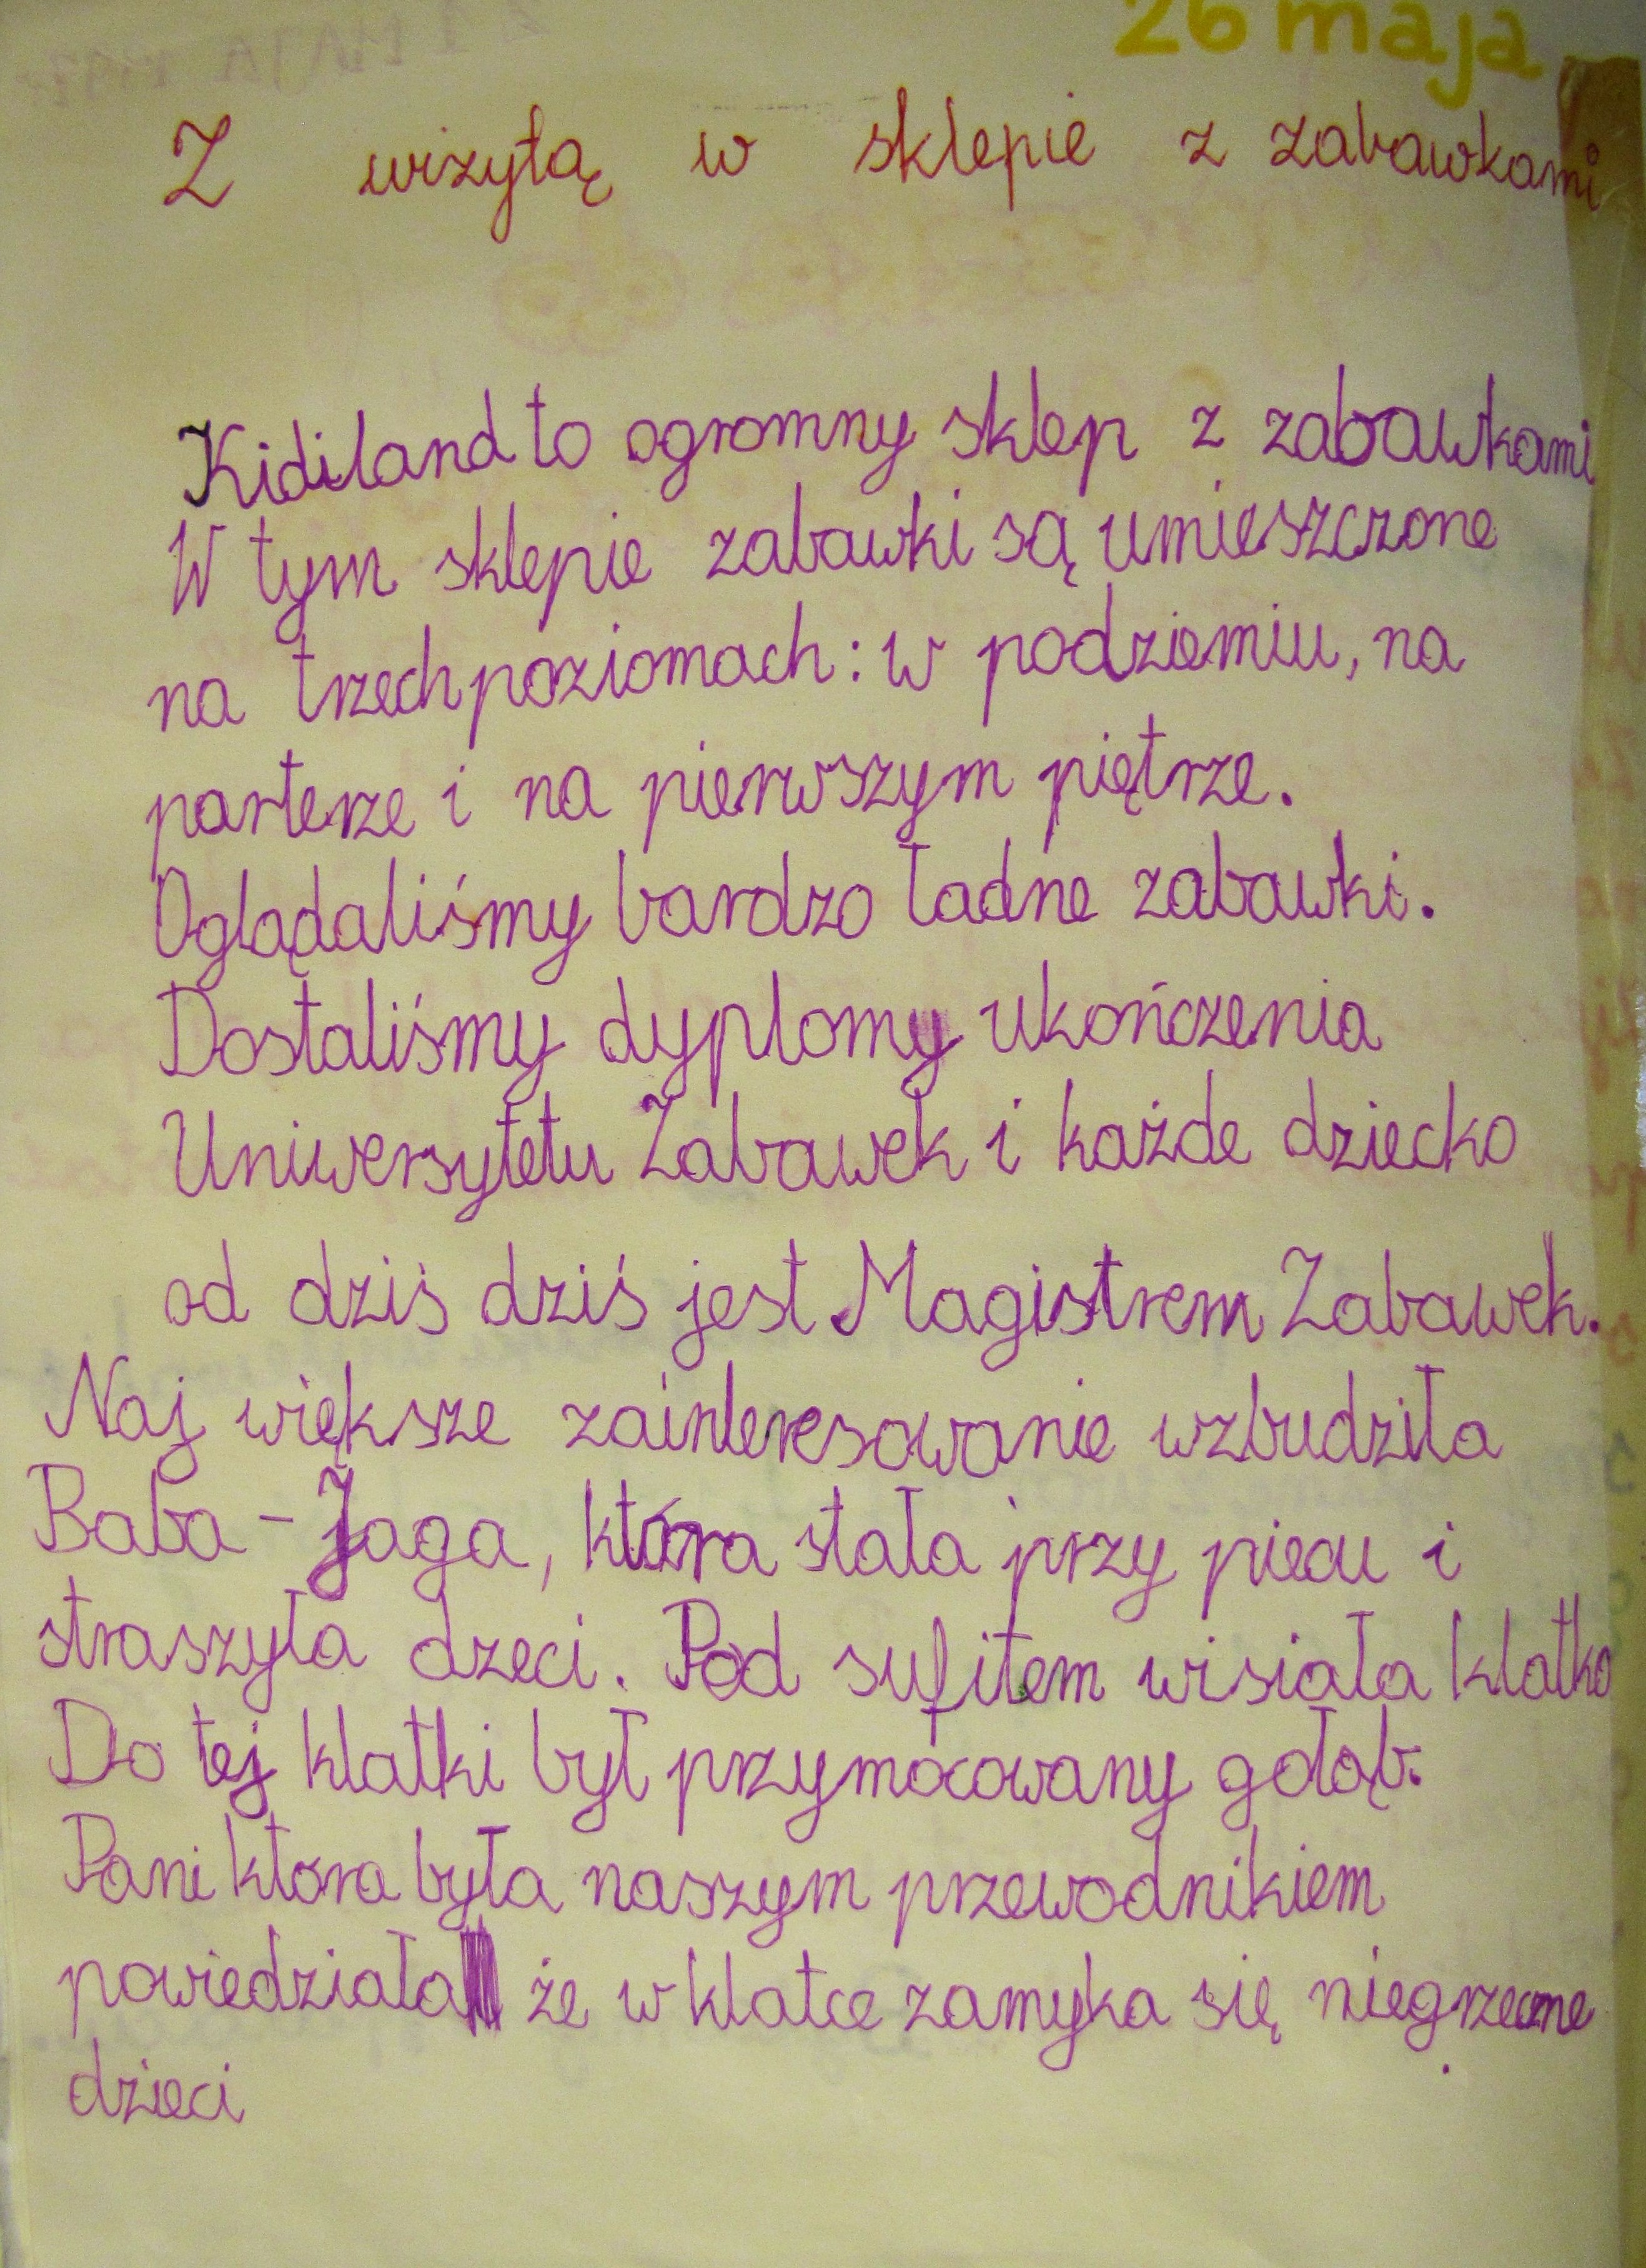 26 maja
Z wizytą w sklepie z zabawkami
Kidiland to ogromny sklep z zabawkami
W tym sklepie zabawki są umieszczone
na trzech poziomach: w podziemiu, na
parterze i na pierwszym piętrze.
Oglądaliśmy bardzo ładne zabawki.
Dostaliśmy dyplomy ukończenia
Uniwersytetu Zabawek i każde dziecko
od dziś dziś jest Magistrem Zabawek.
Naj większe zainteresowanie wzbudziła
Baba - Jaga, która stała przy piecu i
straszyła dzeci. Pod sufitem wisiała klatka
Do tej klatki był przymocowany gołąb.
Pani która była naszym przewodnikiem
powiedziała że w klatce zamyka się niegrzeczne
dzieci